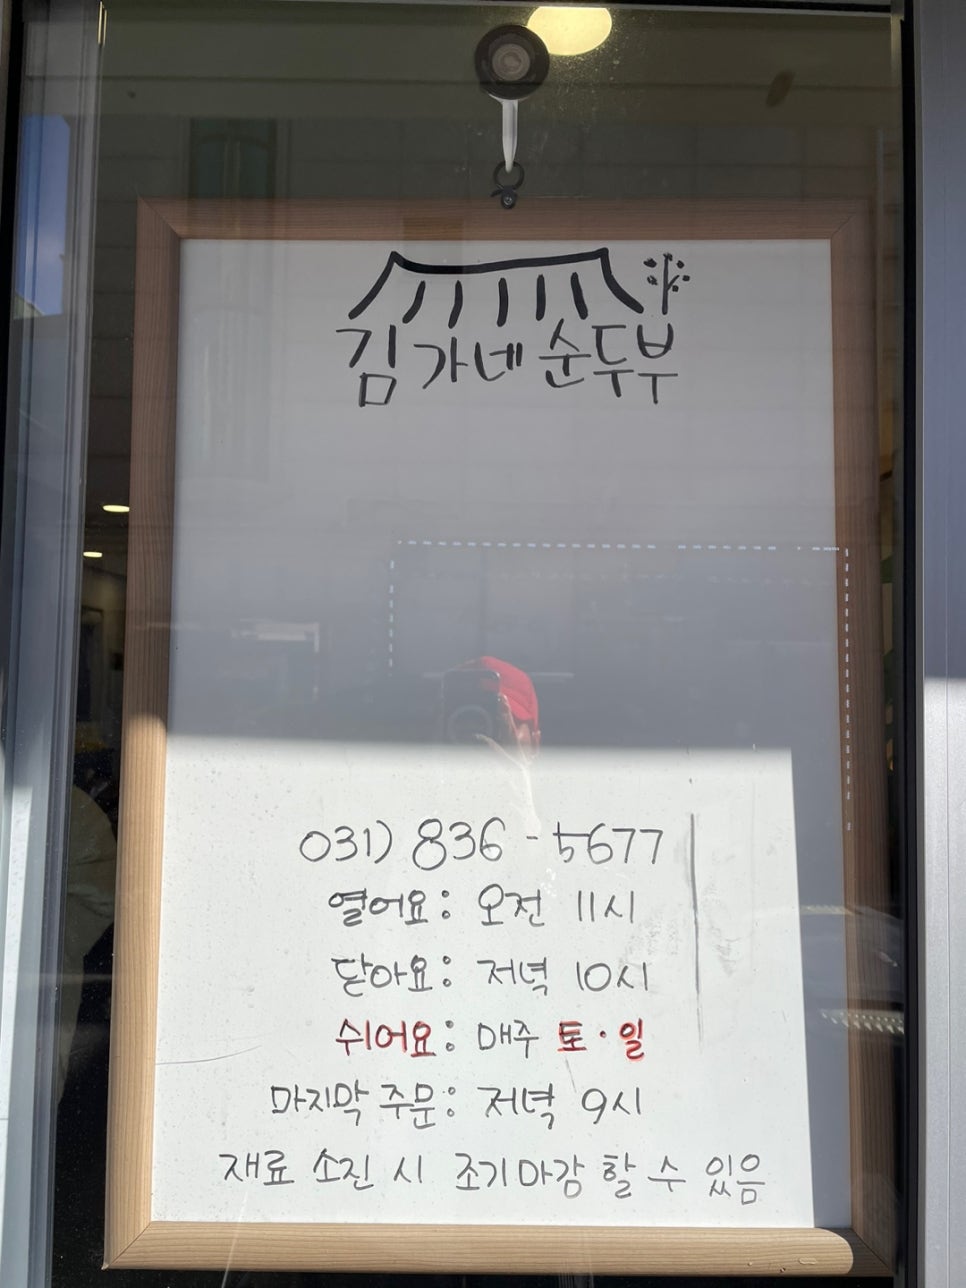 김가네 순두부
031) 836-5677
열어요: 오전 11시
닫아요: 저녁 10시
쉬어요: 매주 토·일
마지막 주문: 저녁 9시
재료 소진 시 조기마감 할 수 있음